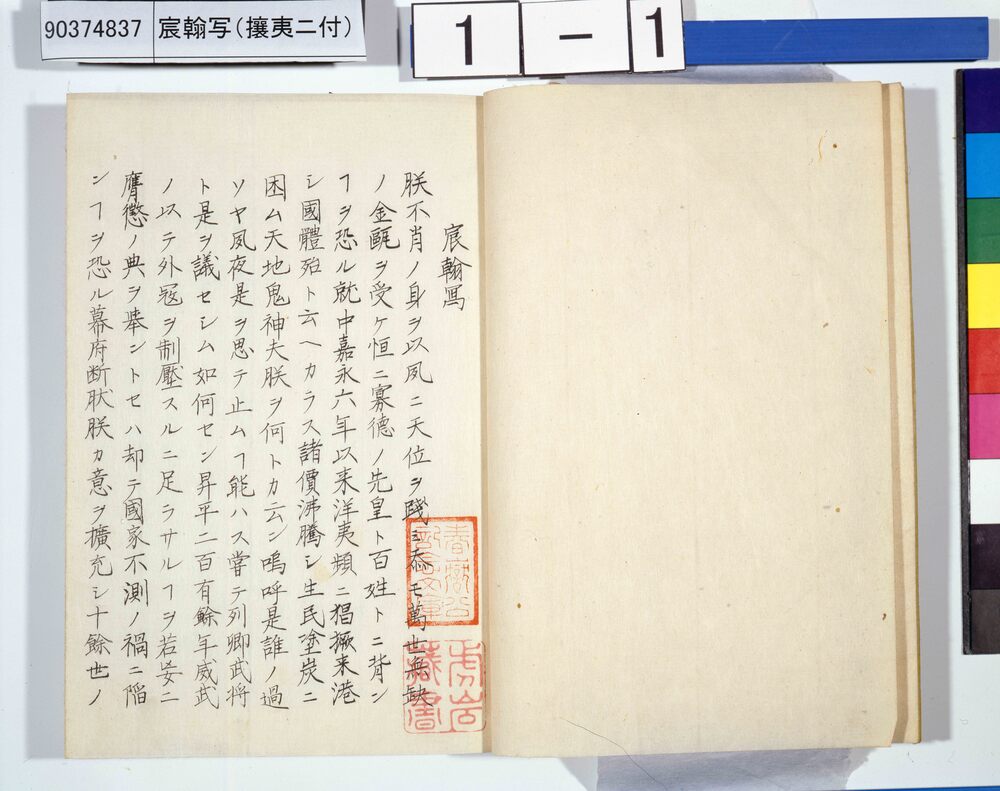 90374837 宸翰写(攘夷ニ付)
1-1
宸翰写
朕不肖ノ身ヲ以夙ニ天位ヲ踐ミ忝モ萬世無缺
ノ金甌ヲ受ケ恒ニ寡德ノ先皇ト百姓トニ背ン
ヿヲ恐ル就中嘉永六年以来洋夷頻ニ猖獗来港
シ國體殆ト云ヘカラス諸價沸騰シ生民塗炭ニ
困ム天地鬼神夫朕ヲ何トカ云ン嗚呼是誰ノ過
ソヤ夙夜是ヲ思テ止ムヿ能ハス嘗テ列卿武将
ト是ヲ議セシム如何セン昇平二百有餘年威武
ノ以テ外冦ヲ制壓スルニ足ラサルヿヲ若妄ニ
膺懲ノ典ヲ挙ントセハ却テ國家不測ノ禍ニ陥
ンヿヲ恐ル幕府断然朕カ意ヲ擴充シ十餘世ノ